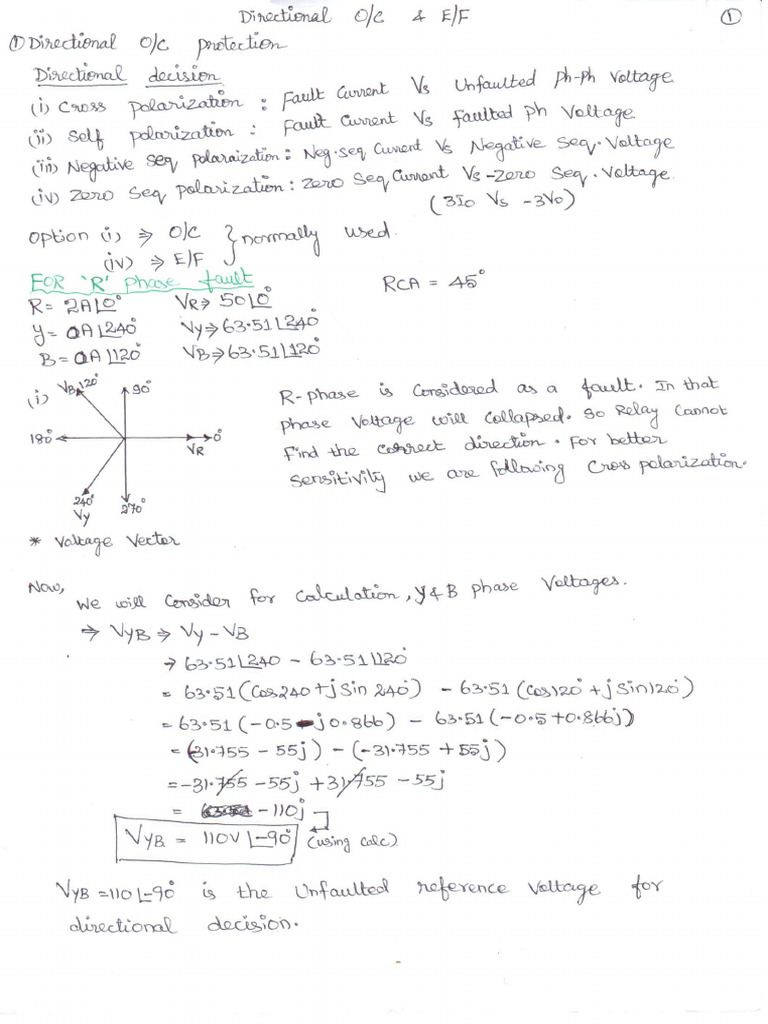 Directional O/C & E/F ①
① Directional O/C protection
Directional decision
(i) Cross polarization : Fault Current Vs Unfaulted Ph-ph Voltage
(ii) Self polarization : Fault Current Vs faulted Ph Voltage
(iii) Negative Seq polaraization : Neg.seq Current Vs Negative Seq. Voltage
(iv) Zero Seq polarization : Zero Seq Current Vs -Zero Seq. Voltage.
(3I0 Vs -3V0)
Option (i) ⇒ O/C } normally used.
(iv) ⇒ E/F
FOR 'R' Phase fault RCA = 45°
R = 2A∠0° VR ⇒ 50∠0°
Y = 0A∠240° VY ⇒ 63.51∠240°
B = 0A∠120° VB ⇒ 63.51∠120°
(i) VB 120° 90°
180° 0°
VR
240° 270°
Vy
R-phase is Considered as a fault. In that
phase Voltage will Collapsed. So Relay Cannot
find the correct direction. For better
Sensitivity we are following Cross polarization.
* Voltage Vector
Now,
We will Consider for Calculation, Y & B phase Voltages.
⇒ VYB ⇒ Vy - VB
→ 63.51∠240 - 63.51∠120°
= 63.51 (Cos240 + j Sin 240°) - 63.51 (Cos120° + j Sin120°)
= 63.51 (-0.5 - j0.866) - 63.51 (-0.5 + 0.866j)
= (-31.755 - 55j) - (-31.755 + 55j)
= -31.755 - 55j + 31.755 - 55j
= -110j
VYB = 110V∠-90° (using calc)
VYB = 110∠-90° is the Unfaulted reference Voltage for
directional decision.